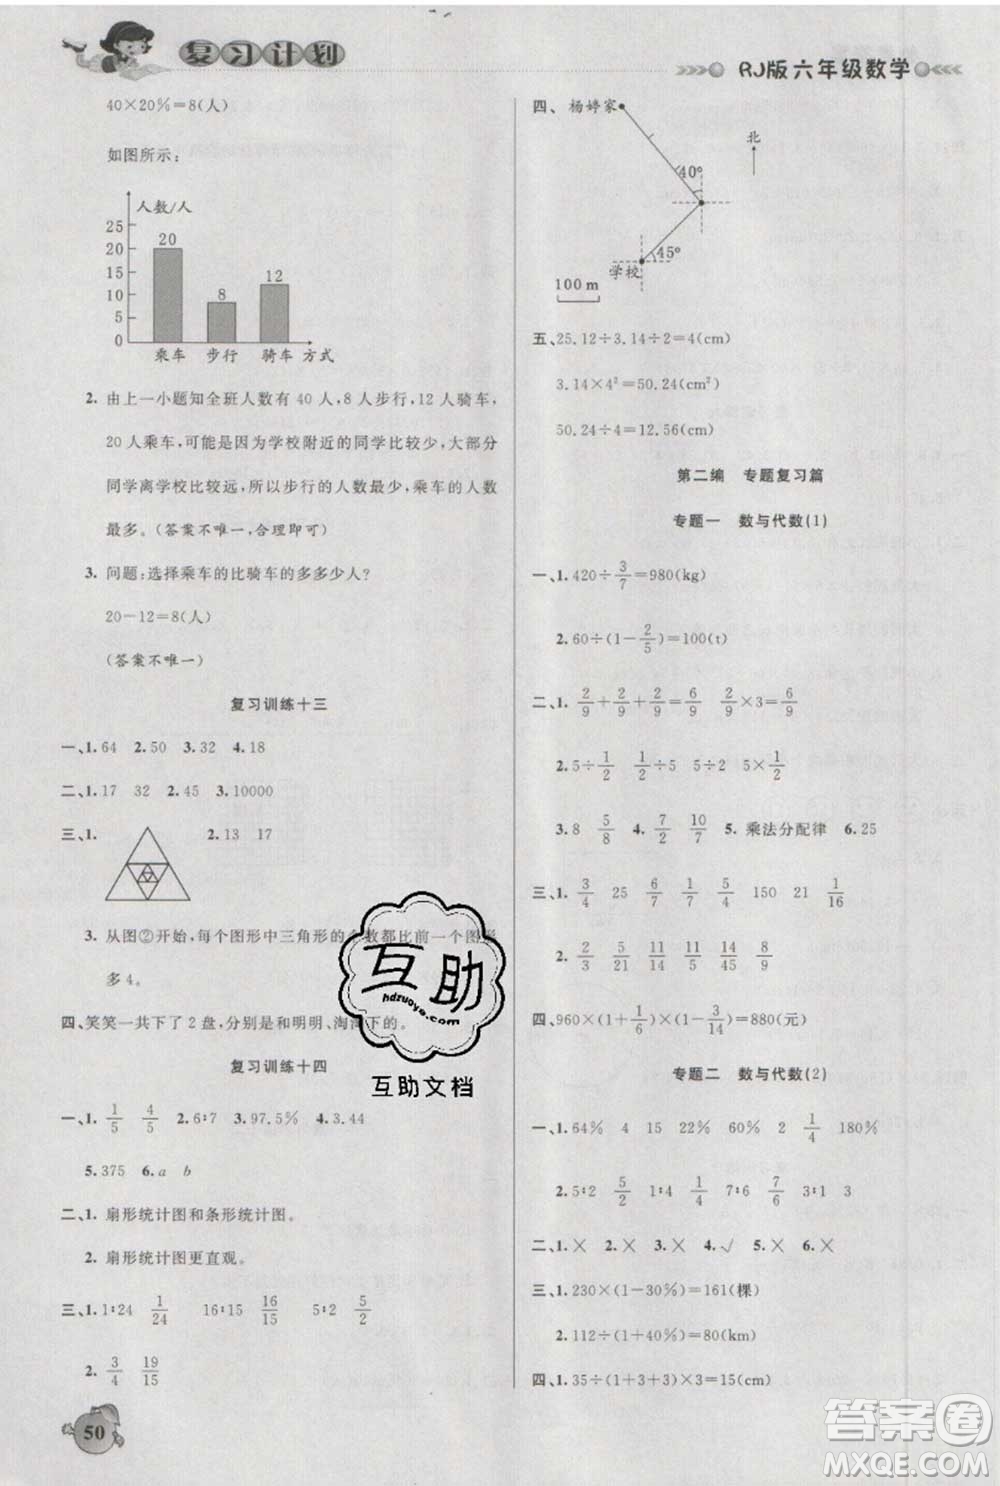 复习计划
RJ版六年级数学
40×20%=8(人)
如图所示:
人数/人
25
20
15
10
5
0
20
8
12
乘车 步行 骑车 方式
2. 由上一小题知全班人数有 40 人,8 人步行,12 人骑车,
20 人乘车,可能是因为学校附近的同学比较少,大部分
同学离学校比较远,所以步行的人数最少,乘车的人数
最多。(答案不唯一,合理即可)
3. 问题:选择乘车的比骑车的多多少人?
20-12=8(人)
(答案不唯一)
复习训练十三
一、1. 64 2. 50 3. 32 4. 18
二、1. 17 32 2. 45 3. 10000
三、1. 2. 13 17
3. 从图②开始,每个图形中三角形的个数都比前一个图形
多 4。
四、笑笑一共下了 2 盘,分别是和明明、淘淘下的。
复习训练十四
一、1. 1/5 4/5 2. 6∶7 3. 97.5% 4. 3.44
5. 375 6. a b
二、1. 扇形统计图和条形统计图。
2. 扇形统计图更直观。
三、1. 1∶24 1/24 16∶15 16/15 5∶2 5/2
2. 3/4 19/15
50
四、 杨婷家
北
40°
45°
学校
100 m
五、25.12÷3.14÷2=4(cm)
3.14×4²=50.24(cm²)
50.24÷4=12.56(cm)
第二编 专题复习篇
专题一 数与代数(1)
一、1. 420÷3/7=980(kg)
2. 60÷(1-2/5)=100(t)
二、1. 2/9+2/9+2/9=6/9 2/9×3=6/9
2. 5÷1/2 1/2÷5 1/2÷5 5×1/2
3. 8 5/8 4. 7/2 10/7 5. 乘法分配律 6. 25
三、1. 3/4 25 6/7 1/7 4/15 150 21 1/16
2. 2/3 5/21 5/9 14/19 8/9
四、960×(1+1/6)×(1-3/14)=880(元)
专题二 数与代数(2)
一、1. 64% 4 15 22% 60% 2 1/4 180%
2. 5∶2 5/2 1∶4 1/4 7∶6 7/6 3∶1 3
二、1.× 2.× 3.× 4.√ 5.× 6.×
三、1. 230×(1-30%)=161(棵)
2. 112÷(1+40%)=80(km)
四、1. 35÷(1+2+4)×3=15(cm)
互助
hdzuoye.com
互助文档
答案卷
MXQE.COM